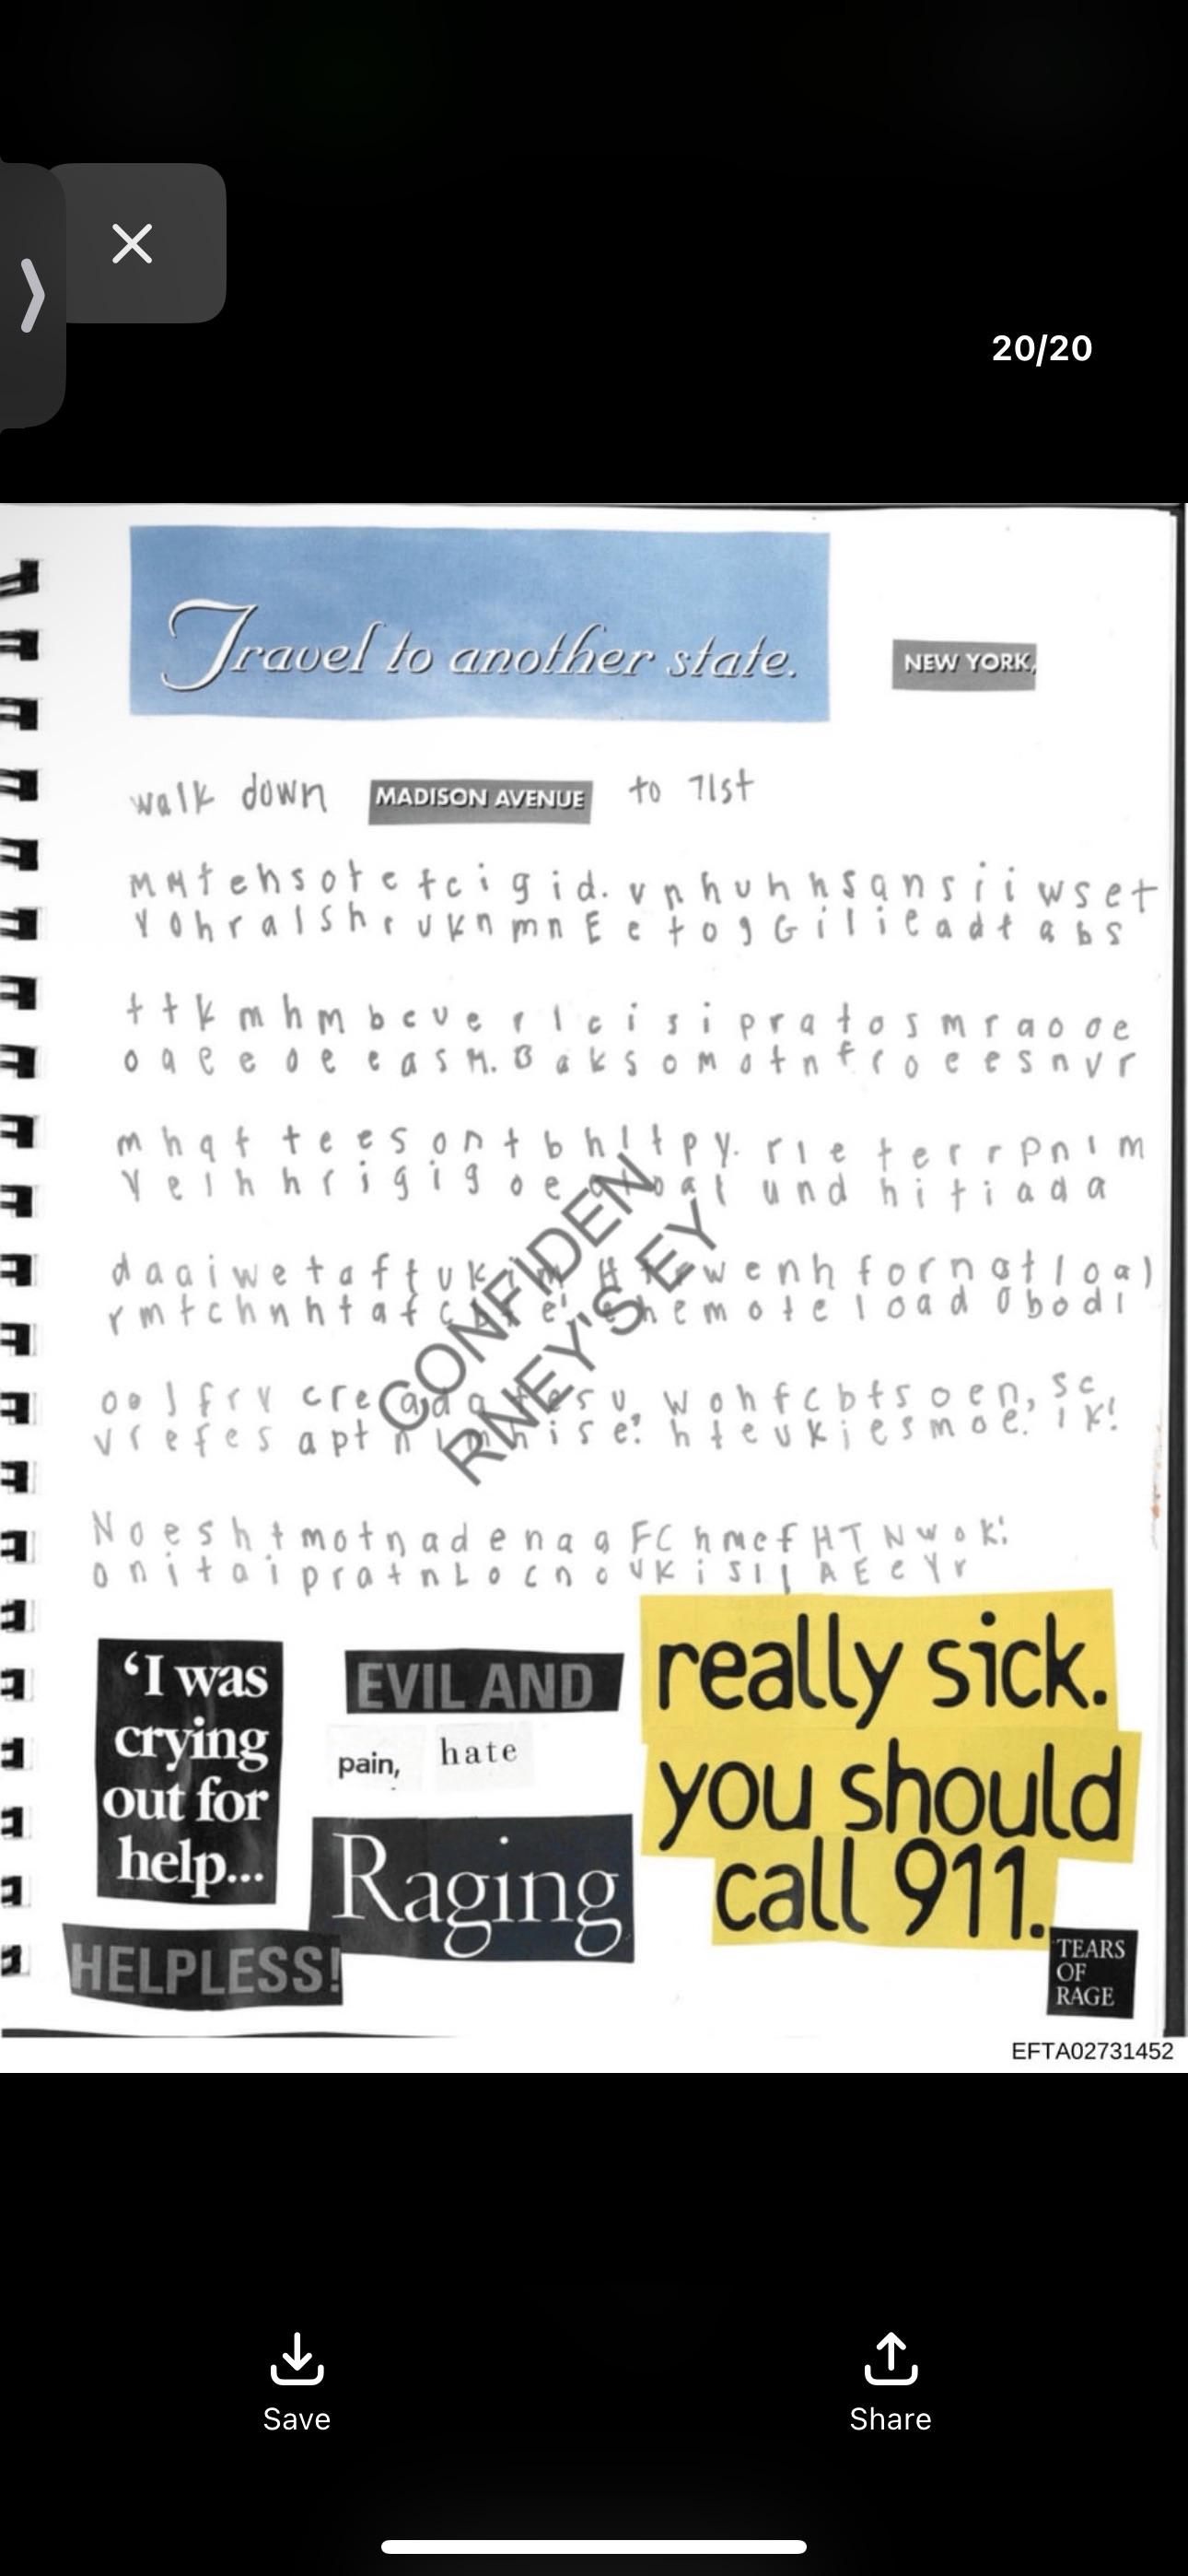 20/20
Travel to another state.
NEW YORK,
walk down MADISON AVENUE to 71st
M M t e h s o t e t c i g i d. v n h u h h s a n s i i w s e t
Y o h r a l s h r u k n m n E e t o g G i l i e a d t a b s
t t k m h m b c u e r l c i s i p r a t o s m r a o o e
o a e e o e e a s M. B a k s o m o t n f r o e e s n v r
m h a t t e e s o n t b h I t p y. r l e t e r r p n i m
Y e l h h r i g i g o e u n d h i t i a d a
d a a i w e t a f t u k w e n h f o r n o t l o a l
r m t c h n h t a f h e m o t e l o a d O b o d i
o o l f r y c r e a d s u, w o h f c b t s o e n, s c
v r e f e s a p t n i s e? h t e u k i e s m o e. i k!
N o e s h t m o t n a d e n a a F C h m e f H T N w o k!
o n i t a i p r a t n L o c n o u k i s I I A E e Y r
CONFIDEN
RNEY'S EY
‘I was
crying
out for
help...
EVIL AND
pain, hate
Raging
HELPLESS!
really sick.
you should
call 911.
TEARS
OF
RAGE
EFTA02731452
Save
Share